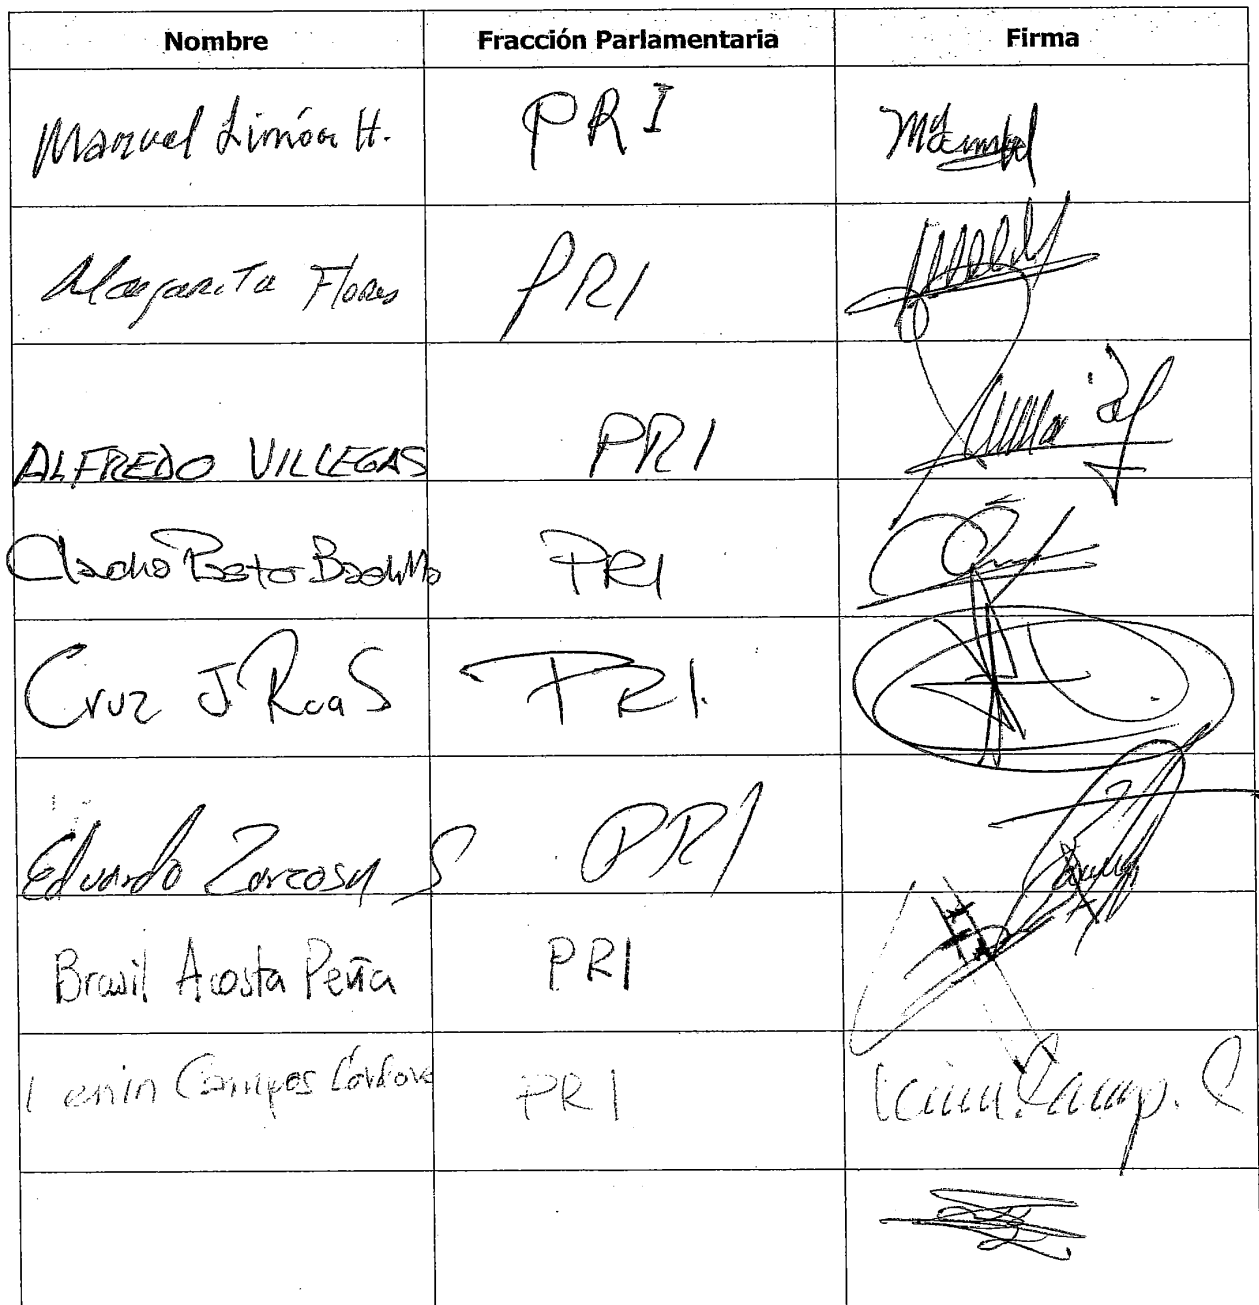 Nombre Fracción Parlamentaria Firma
Manuel Limón H. PRI
Margarita Flores PRI
ALFREDO VILLEGAS PRI
PRI
Cruz J Roa S PRI.
Eduardo Zarcosa S PRI
Brasil Acosta Peña PRI
Lenin Campos Córdova PRI Lenin Camp. C